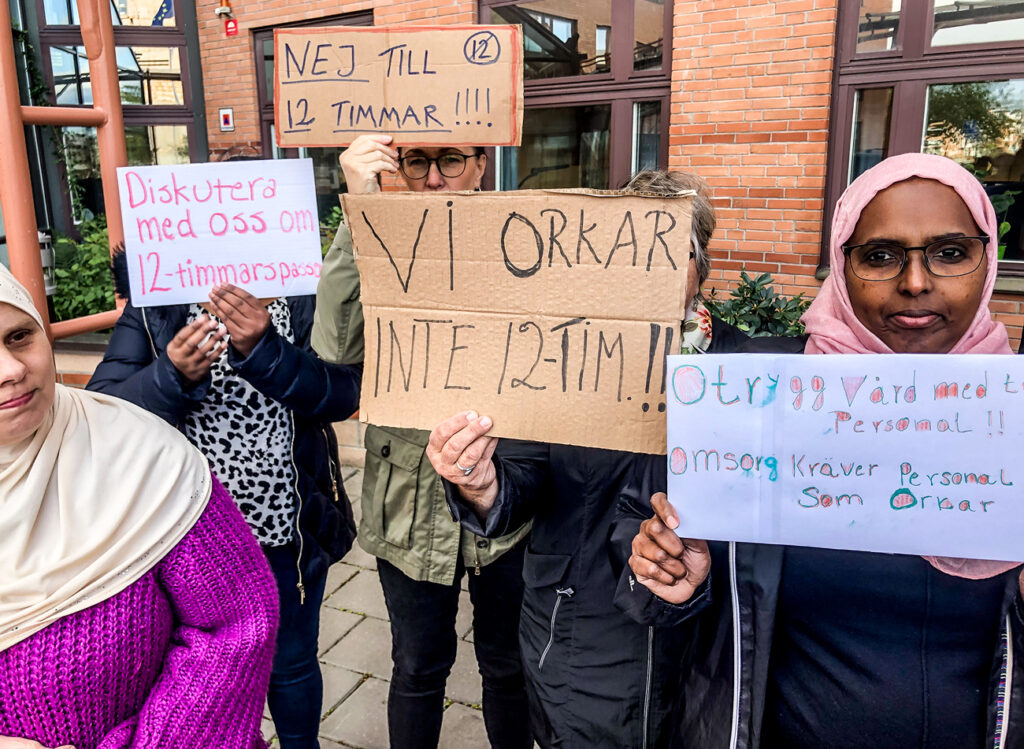 NEJ TILL 12
12 TIMMAR !!!!
Diskutera
med oss om
12-timmarspass
VI ORKAR
INTE 12-TIM.!!
Otrygg Vård med
Personal !!
Omsorg Kräver Personal
Som Orkar